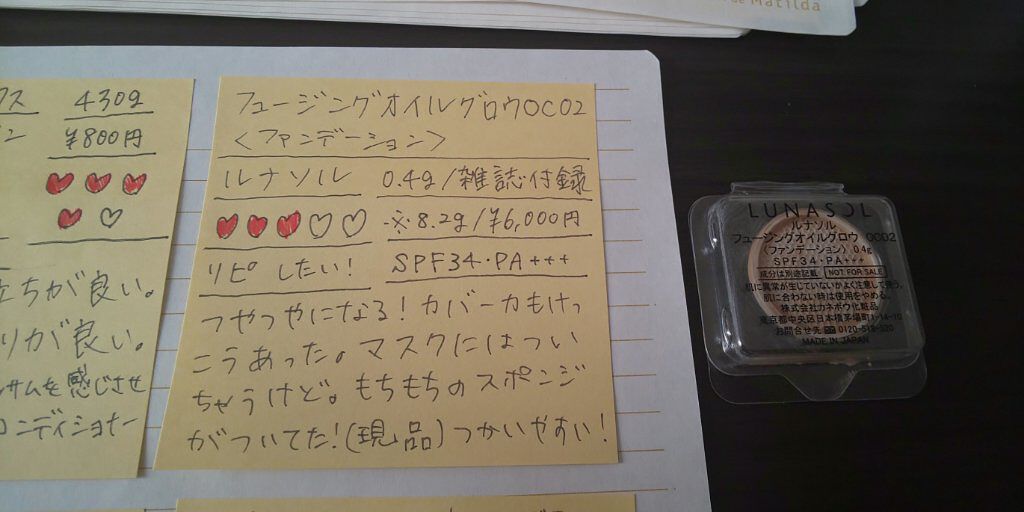 de Matilda
クス 430g
ン ¥800円
立ちが良い。
りが良い。
ンサムを感じさせ
コンディショナー
フュージングオイルグロウOC02
〈ファンデーション〉
ルナソル 0.4g/雑誌付録
※8.2g/¥6,000円
リピしたい! SPF34・PA+++
つやつやになる!カバー力もけっ
こうあった。マスクにはつい
ちゃうけど。もちもちのスポンジ
がついてた!(現品)つかいやすい!
LUNASOL
ルナソル
フュージングオイルグロウ OC02
〈ファンデーション〉 0.4g
SPF34・PA+++
成分は別途記載 NOT FOR SALE
肌に異常が生じていないかよく注意して使う。
肌に合わない時は使用をやめる。
株式会社カネボウ化粧品
東京都中央区日本橋茅場町1-14-10
お問合せ先 0120-518-520
MADE IN JAPAN